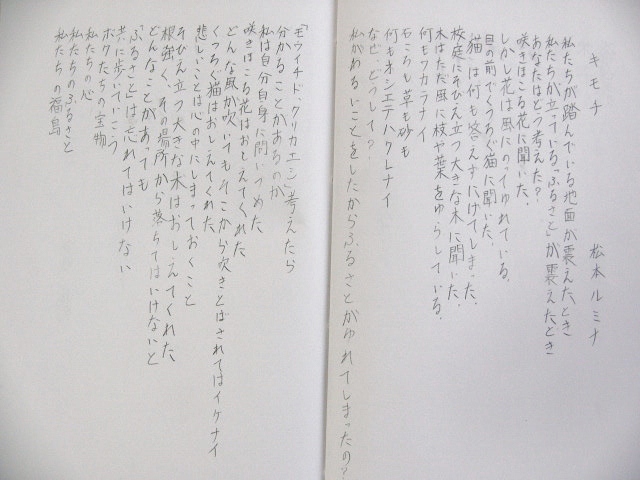 キモチ
松本ルミナ
私たちが踏んでいる地面が震えたとき
私たちが立っている「ふるさと」が震えたとき
あなたはどう考えた?
咲きほこる花に聞いた。
しかし花は風にのってゆれている。
目の前でくつろぐ猫に聞いた。
「猫」は何も答えずにげてしまった。
校庭にそびえ立つ大きな木に聞いた。
木はただ風に枝や葉をゆらしている。
何もワカラナイ
石ころも草も砂も
何もオシエテハクレナイ
なぜ、どうして?
私がわるいことをしたからふるさとがゆれてしまったの?
「モウイチド、クリカエシ」考えたら
分かることがあるのか
私は自分自身に問いつめた
咲きほこる花はおしえてくれた
どんな風が吹いてもそこから吹きとばされてはイケナイ
くつろぐ猫はおしえてくれた
悲しいことは心の中にしまっておくこと
そびえ立つ大きな木はおしえてくれた
根強く、その場所から落ちてはいけないと
どんなことがあっても
「ふるさと」は忘れてはいけない
共に歩いていこう
ボクたちの宝物
私たちの心
私たちのふるさと
私たちの福島